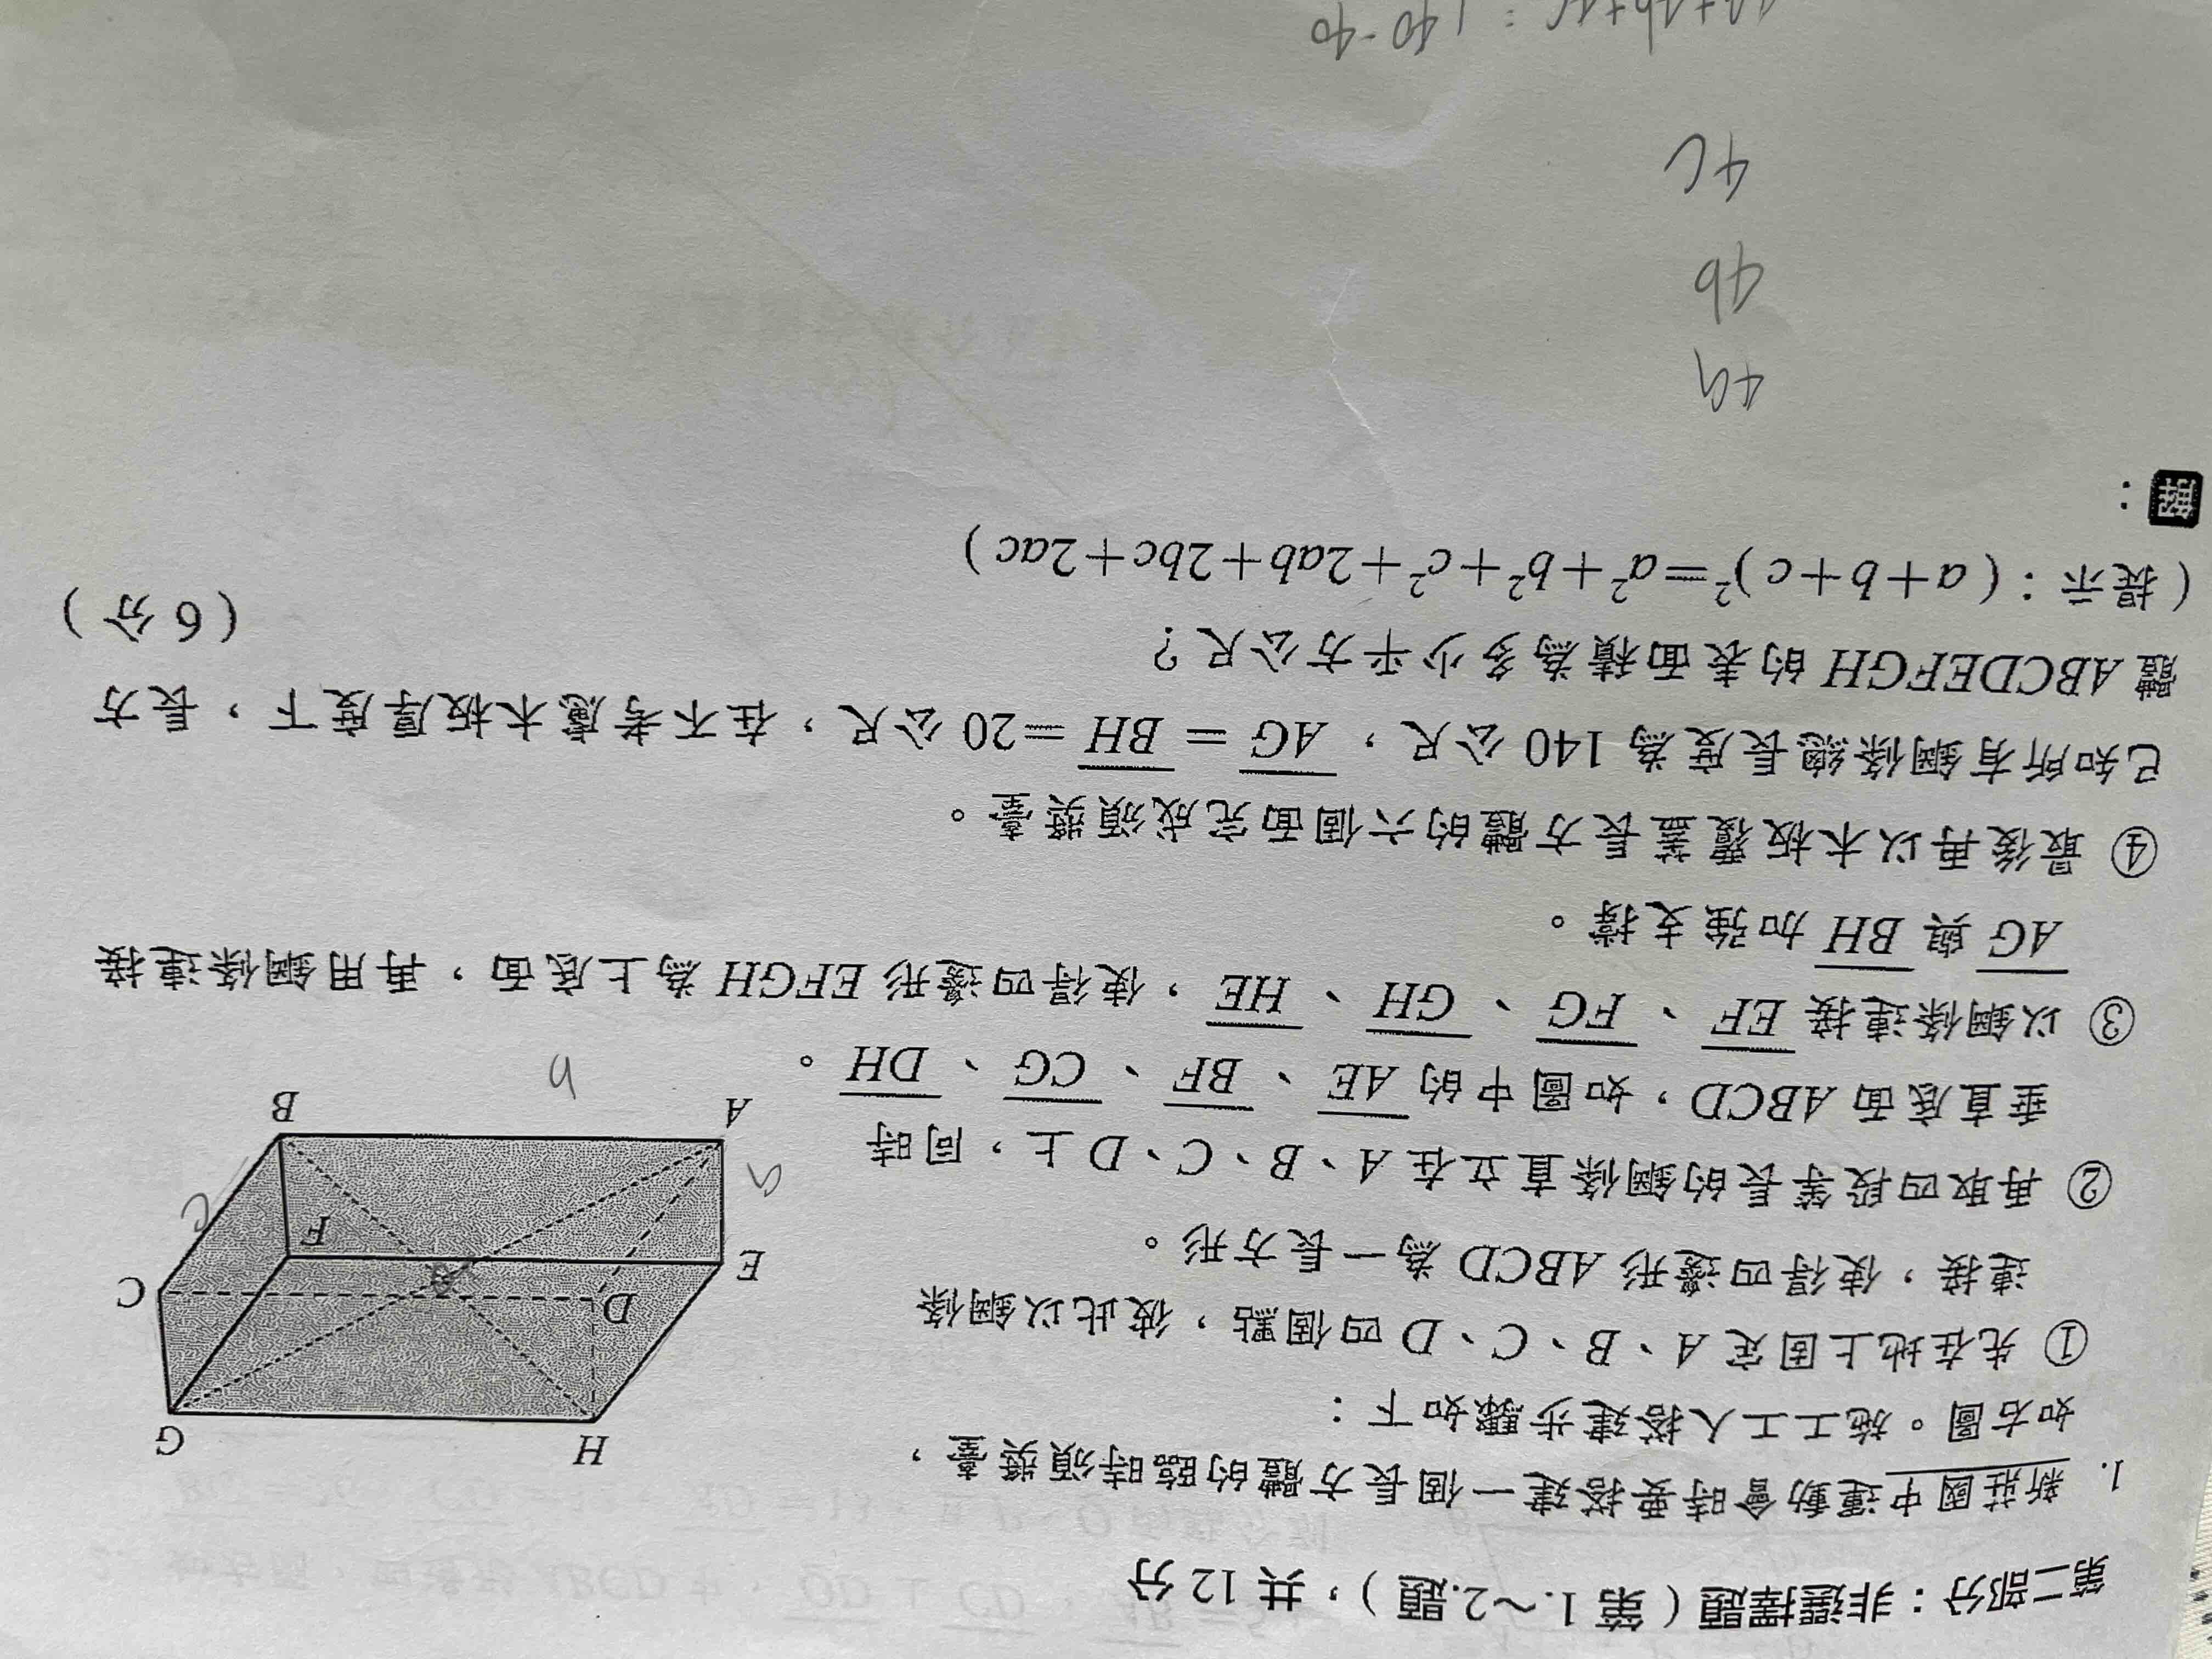 第二部分：非選擇題（第1.～2.題），共12分
1. 新莊國中運動會時要搭建一個長方體的臨時頒獎臺，
如右圖。施工工人搭建步驟如下：
① 先在地上固定A、B、C、D四個點，彼此以鋼條
連接，使得四邊形ABCD為一長方形。
② 再取四段等長的鋼條直立在A、B、C、D上，同時
垂直底面ABCD，如圖中的AE、BF、CG、DH。
③ 以鋼條連接EF、FG、GH、HE，使得四邊形EFGH為上底面，再用鋼條連接
AG與BH加強支撐。
④ 最後再以木板覆蓋長方體的六個面完成頒獎臺。
已知所有鋼條總長度為140公尺，AG＝BH＝20公尺，在不考慮木板厚度下，長方
體ABCDEFGH的表面積為多少平方公尺？
（6分）
（提示：(a+b+c)²=a²+b²+c²+2ab+2bc+2ac）
解：
H
G
D
C
E
F
A
B
a
b
c
4a
4b
4c
4a+4b+4c = 140-40